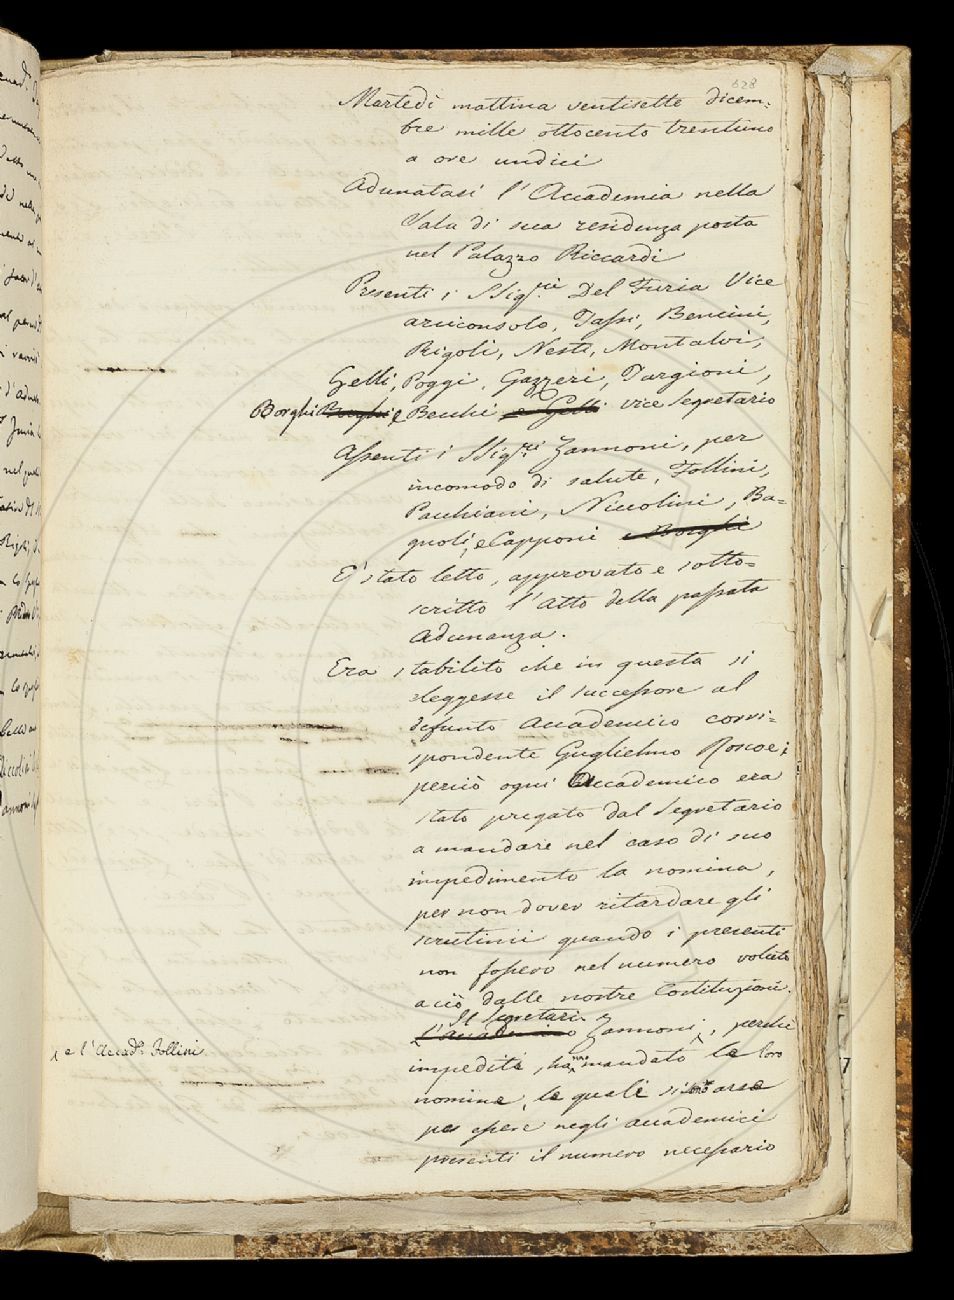 628
Martedì mattina ventisette dicem=
bre mille ottocento trentuno
a ore undici
Adunatasi l'Accademia nella
Sala di sua residenza posta
nel Palazzo Riccardi
Presenti i SSig.ri Del Furia Vice
arciconsolo, Tassi, Bencini,
Rigoli, Nesti, Montalvi,
Gelli, Poggi, Gazzeri, Targioni,
Borghi Borghi e Becchi e Gelli vice Segretario
Assenti i SSig.ri Zannoni, per
incomodo di salute, Follini,
Pacchiani, Niccolini, Ba=
gnoli, e Capponi e Borghi
E' stato letto, approvato e sotto=
scritto l'atto della passata
Adunanza.
Era stabilito che in questa si
eleggesse il successore al
defunto Accademico corri=
spondente Guglielmo Roscoe;
perciò ogni Accademico era
stato pregato dal Segretario
a mandare nel caso di suo
impedimento la nomina,
per non dover ritardare gli
scrutinii quando i presenti
non fossero nel numero voluto
a ciò dalle nostre Costituzioni.
Il Segretario
l'Accademico Zannoni, perchè
e l'Accad.o Follini
impediti, hanno mandato le loro
nomine, le quali
per essere negli accademici
presenti il numero necessario